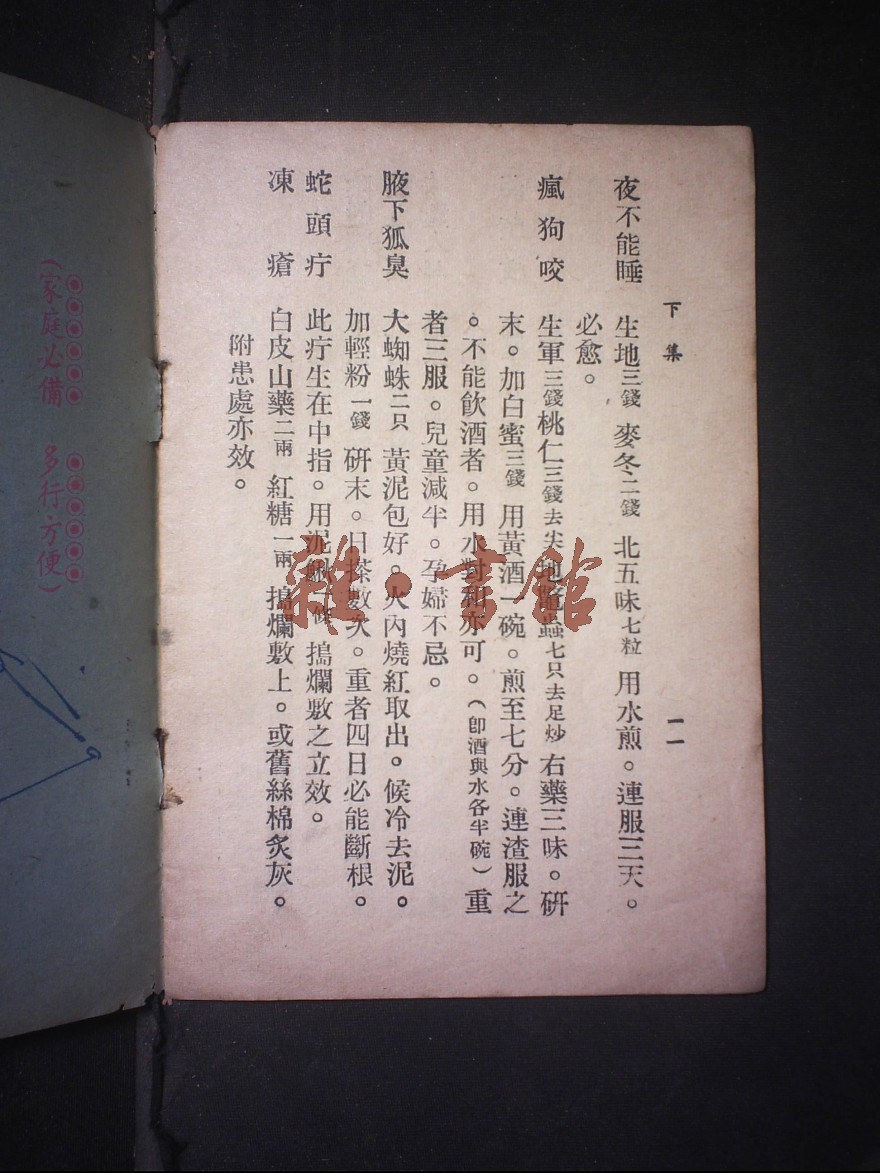 下集
一一
夜不能睡 生地三錢 麥冬二錢 北五味七粒 用水煎。連服三天。
必愈。
瘋狗咬 生軍三錢桃仁三錢去尖地鱉蟲七只去足炒 右藥三味。研
末。加白蜜三錢 用黃酒一碗。煎至七分。連渣服之
。不能飲酒者。用水對和亦可。(卽酒與水各半碗)重
者三服。兒童減半。孕婦不忌。
腋下狐臭 大蜘蛛二只 黃泥包好。火內燒紅取出。候冷去泥。
加輕粉一錢 研末。日搽數次。重者四日必能斷根。
蛇頭疔 此疔生在中指。用泥鰍一條 搗爛敷之立效。
凍瘡 白皮山藥二兩 紅糖一兩 搗爛敷上。或舊絲棉炙灰。
附患處亦效。
(家庭必備 多行方便)
雜·書館